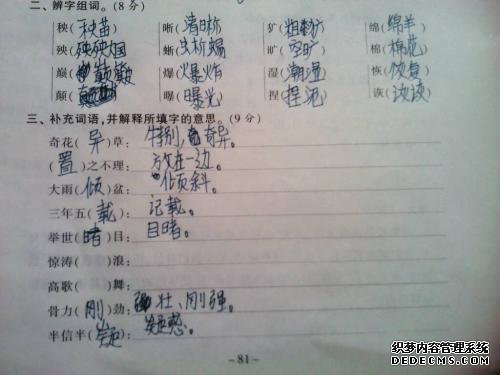 二、辨字组词。(8分)
秧(秧苗) 晰(清晰) 犷(粗犷) 绵(绵羊)
殃(殃国) 蜥(蜥蜴) 旷(空旷) 棉(棉花)
巅(巅) 爆(爆炸) 湿(潮湿) 恢(恢复)
颠( 曝(曝光) 捏(捏泥) 诙(
三、补充词语,并解释所填字的意思。(9分)
奇花(异)草: 特别,奇异。
(置)之不理: 放在一边。
大雨(倾)盆: 倾斜。
三年五(载): 记载。
举世(睹)目: 目睹。
惊涛( )浪:
高歌( )舞:
骨力(刚)劲: 壮、刚强。
半信半(疑): 疑惑。
-81-
织梦内容管理系统
织梦好,好织梦